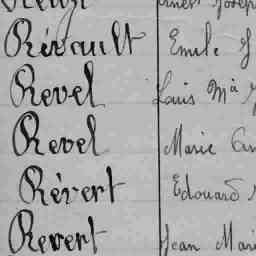 Révault Emile
Revel Louis Mª
Revel Marie
Révert Edouard
Revert Jean Marie